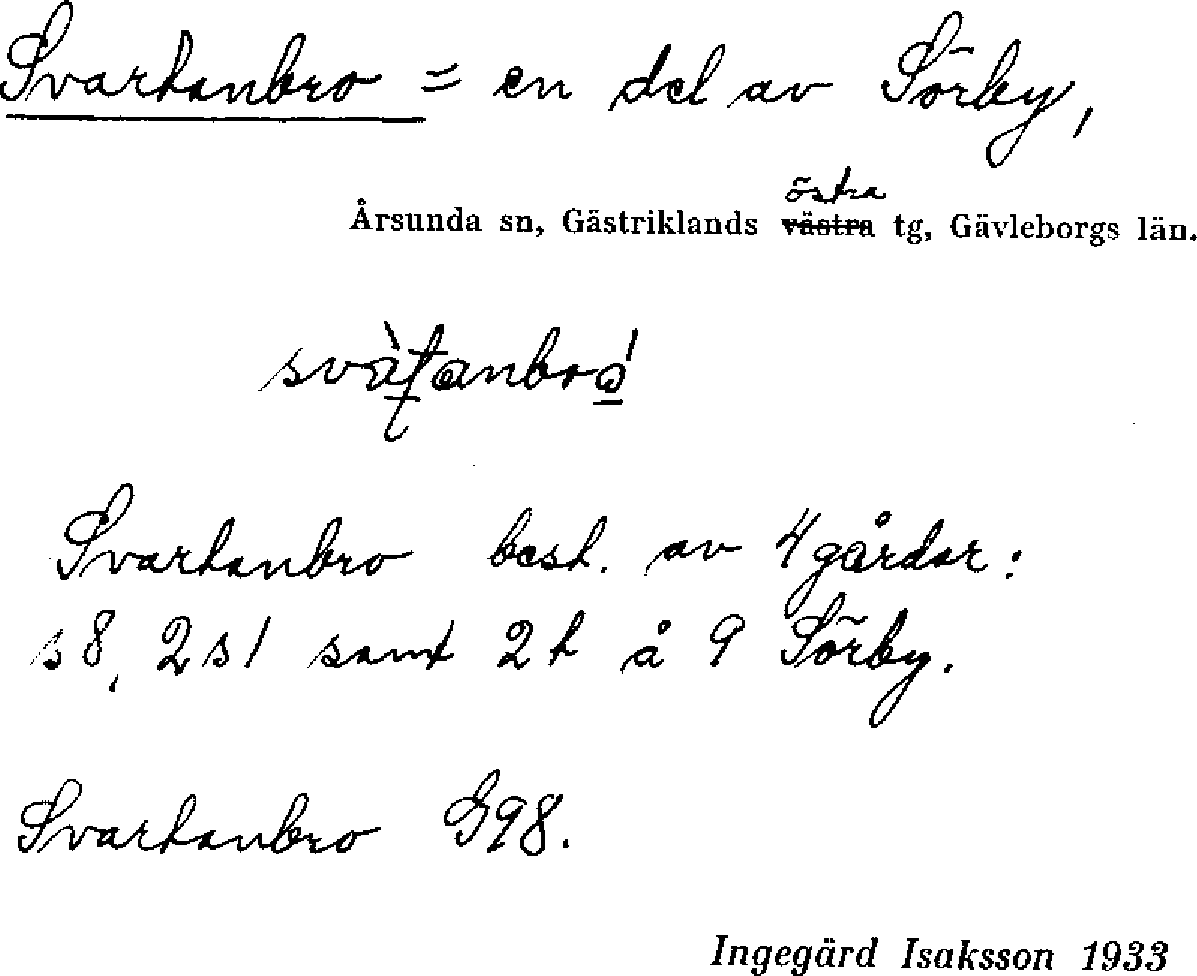 Svartanbro = en del av Sörby,
östra
Årsunda sn, Gästriklands västra tg, Gävleborgs län.
Svartanbro best. av 4 gårdar:
s 8, 2 s 1 samt 2 h å 9 Sörby.
Svartanbro G98.
Ingegärd Isaksson 1933